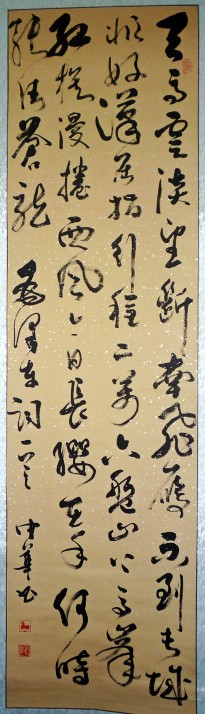 天高雲淡望斷南飛雁不到长城
非好漢屈指行程二萬六盤山上高峯
紅旗漫捲西風今日長纓在手何時
縛住蒼龍 毛澤东詞一首